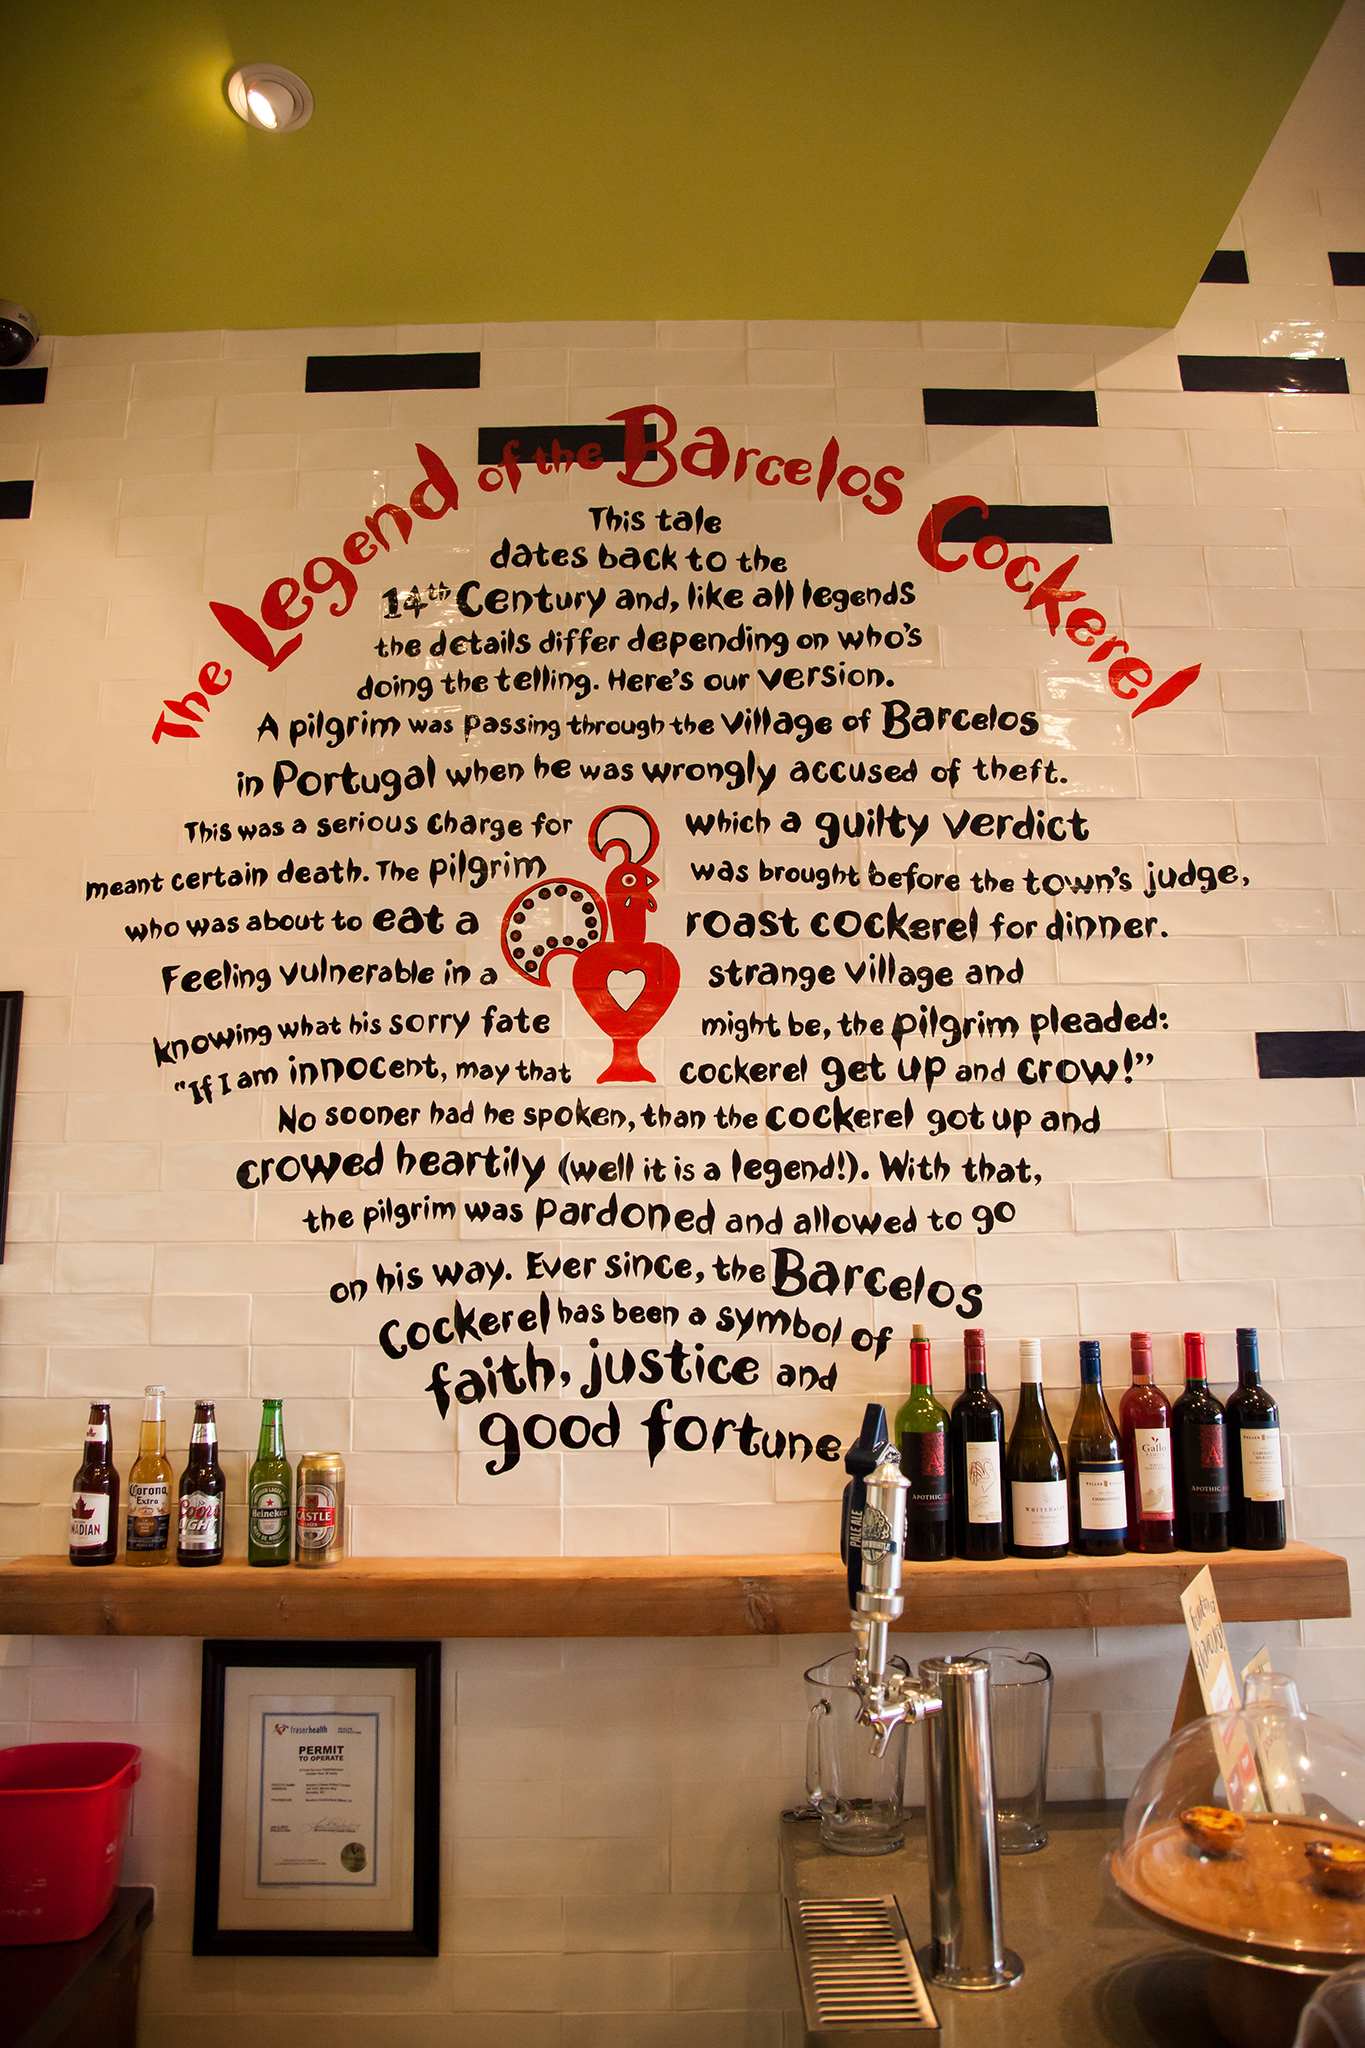 The Legend of the Barcelos Cockerel
This tale
dates back to the
14th Century and, like all legends
the details differ depending on who's
doing the telling. Here's our version.
A pilgrim was passing through the village of Barcelos
in Portugal when he was wrongly accused of theft.
This was a serious charge for which a guilty verdict
meant certain death. The pilgrim was brought before the town's judge,
who was about to eat a roast cockerel for dinner.
Feeling vulnerable in a strange village and
knowing what his sorry fate might be, the pilgrim pleaded:
"If I am innocent, may that cockerel get up and crow!"
No sooner had he spoken, than the cockerel got up and
crowed heartily (well it is a legend!). With that,
the pilgrim was pardoned and allowed to go
on his way. Ever since, the Barcelos
Cockerel has been a symbol of
faith, justice and
good fortune
Corona
Extra
Coors
LIGHT
Heineken
CASTLE
LAGER
APOTHIC
Gallo
FAMILY
APOTHIC
CHARDONNAY
fraserhealth
PERMIT
TO OPERATE